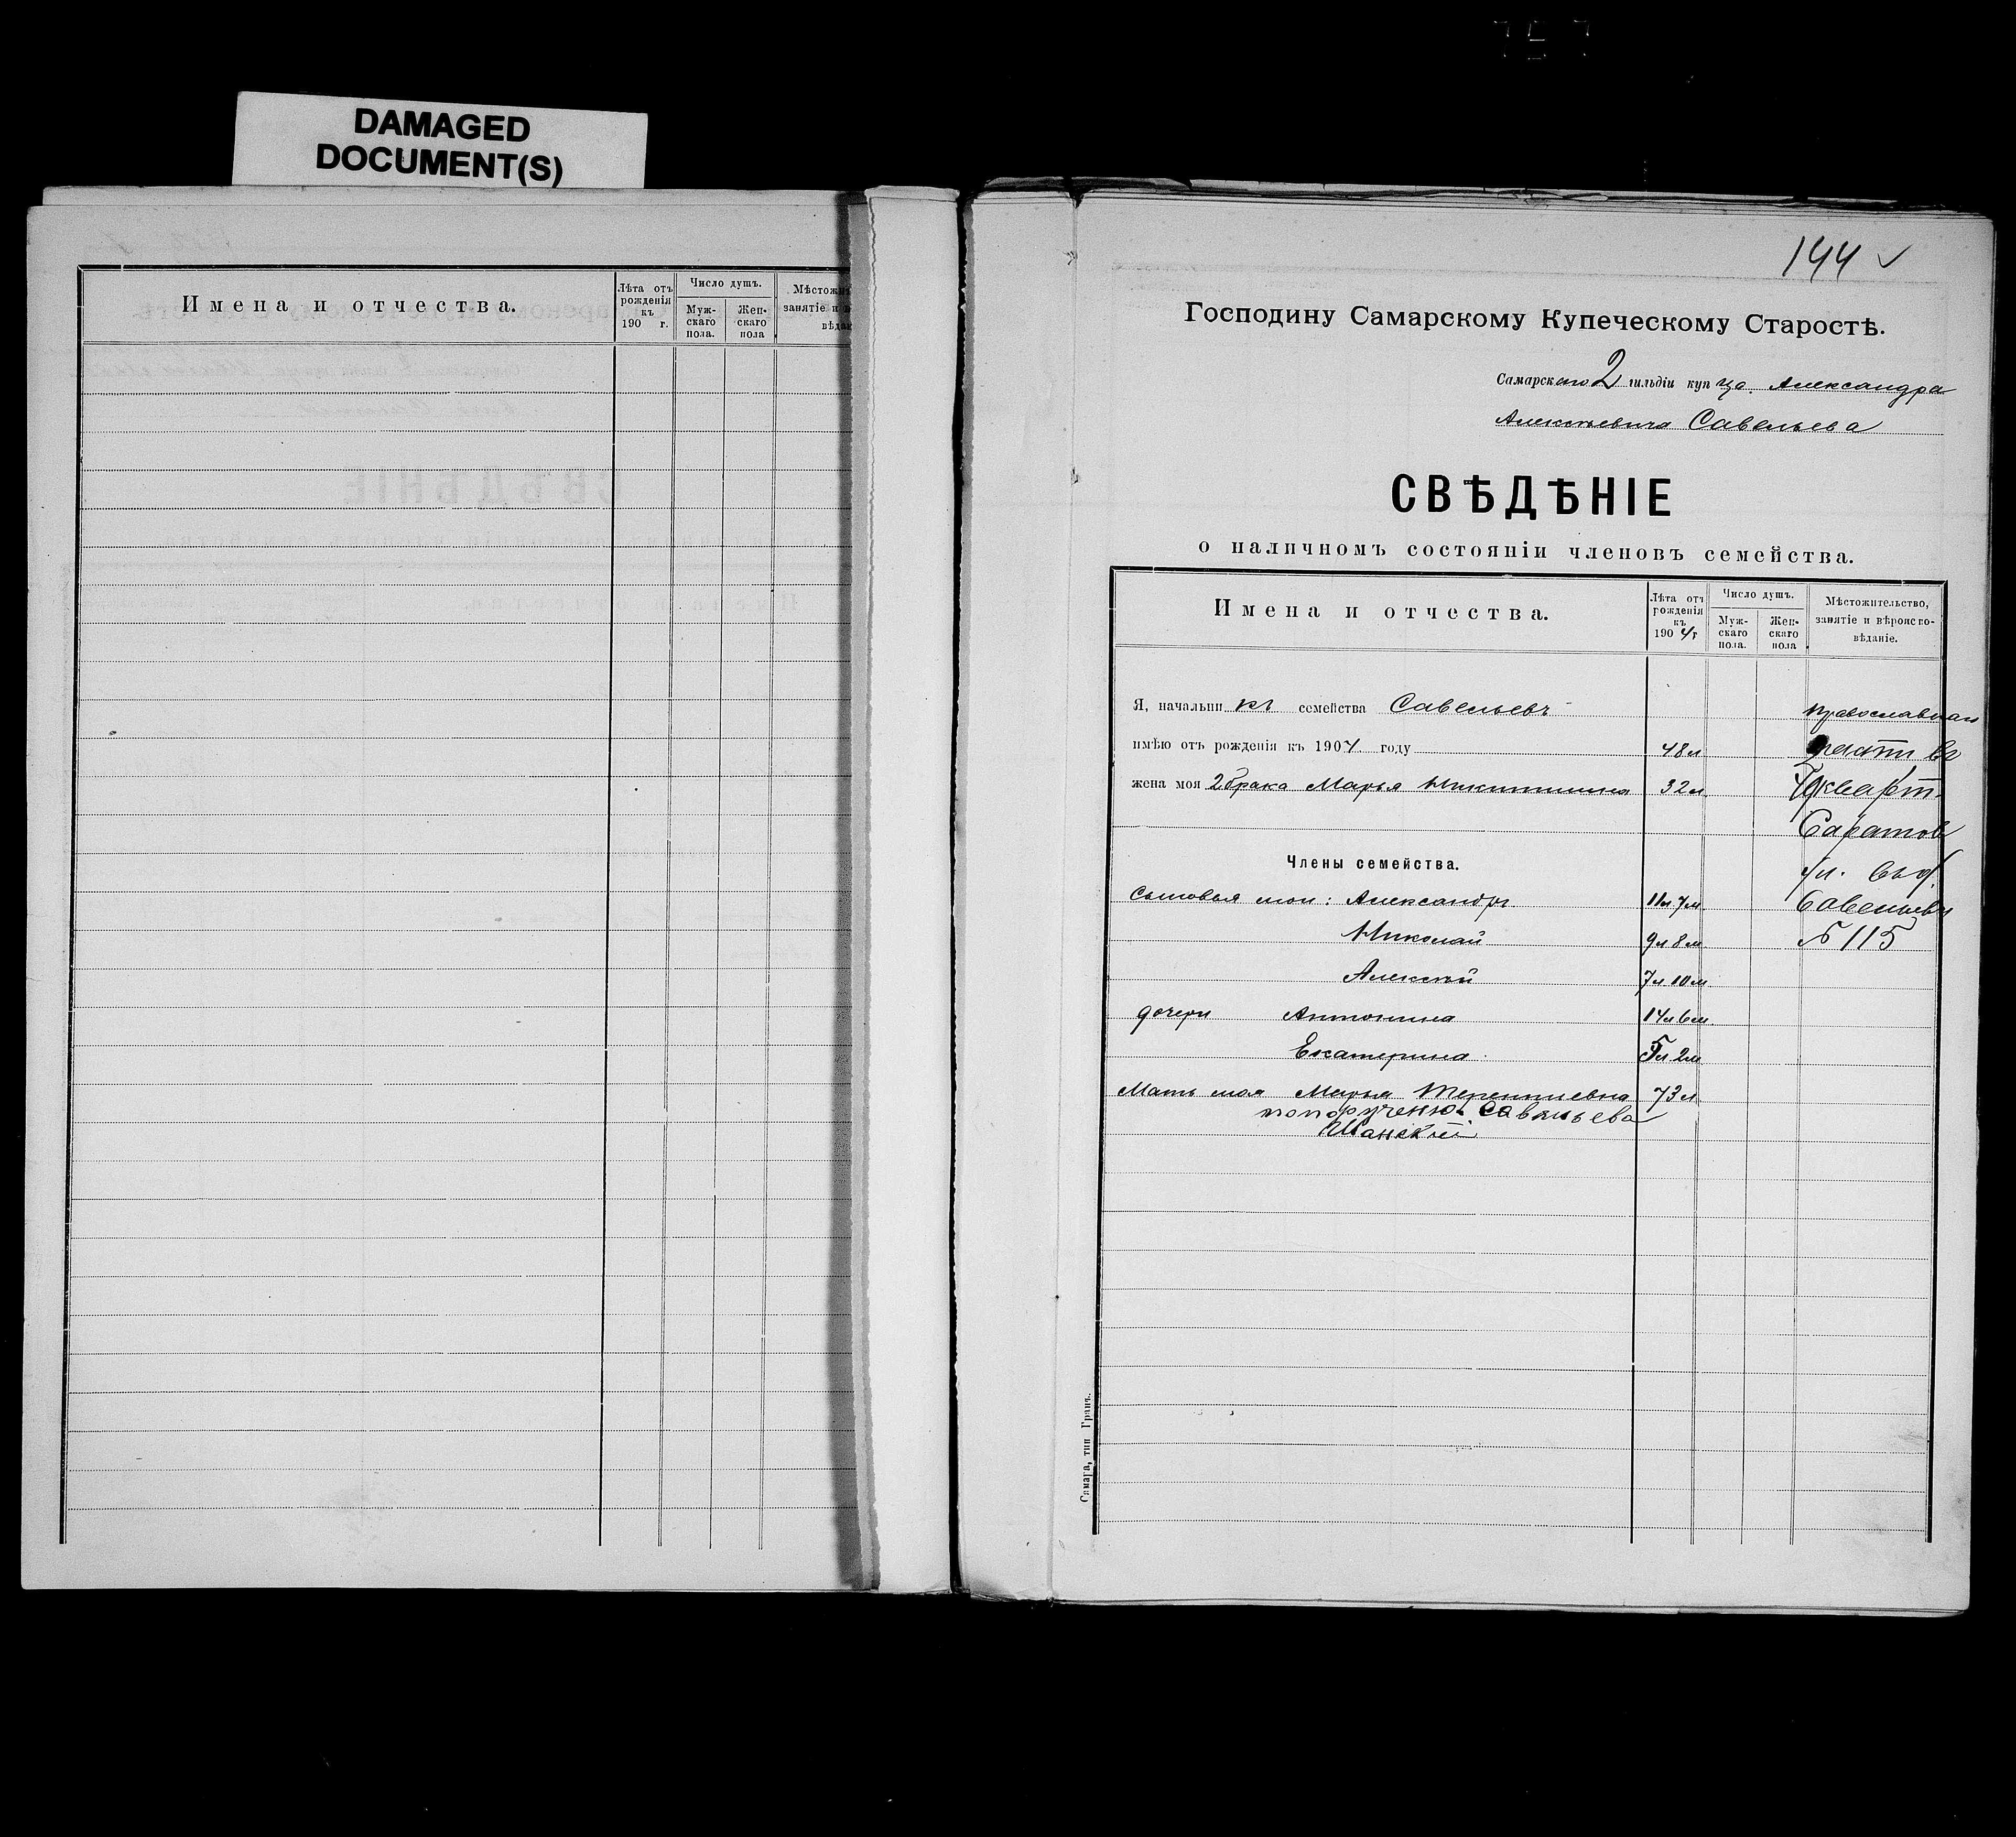 DAMAGED
DOCUMENT(S)
Имена и отчества.
Лѣта отъ рожденія къ 190 г.
Число душъ.
Муж-скаго пола.
Жен-скаго пола
144 ✓
Господину Самарскому Купеческому Старостѣ.
Самарскаго 2 гильдіи купца Александра
Алексѣевича Савельева
СВѢДѢНІЕ
о наличномъ состояніи членовъ семейства.
Имена и отчества.
Лѣта отъ рожденія къ 1904 г
Число душъ.
Муж-скаго пола.
Жен-скаго пола
Мѣстожительство, занятіе и вѣроиспо-вѣданіе.
Я, начальникъ семейства Савельевъ православная
имѣю отъ рожденія къ 1904 году 48 л части въ
жена моя 2 брака Марья Никитишна 32 л кварт.
Саратов
Члены семейства.
ул. въ д.
сыновья мои: Александръ 11 л 7 м Савельева
Николай 9 л 8 м № 115
Алексѣй 7 л 10 м
дочери Антонина 14 л 6 м
Екатерина 5 л 2 м
Мать моя Марья Терентьевна 73 л
Савельева
Самара, тип Гранъ.